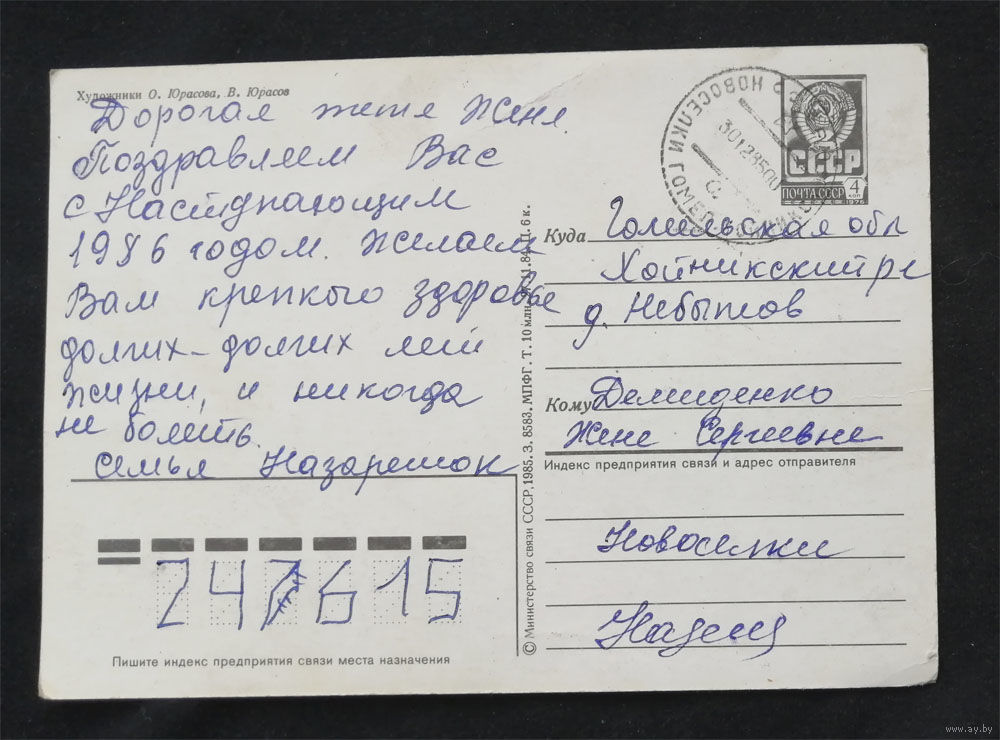 Художники О. Юрасова, В. Юрасов
Дорогая тетя Женя.
Поздравляем Вас
с Наступающим
1986 годом. Желаем
Вам крепкого здоровье
долгих-долгих лет
жизни, и никогда
не болеть.
семья Назаренок
Пишите индекс предприятия связи места назначения
© Министерство связи СССР, 1985. З. 8583. МПФГ. Т. 10 млн.
Ц. 6 к.
НОВОСЕЛКИ ГОМЕЛ
СССР
ПОЧТА СССР
4
КОП
1976
Куда Гомельская обл
Хойникский р-
д. Небытов
Кому Демиденко
Жене Сергеевне
Индекс предприятия связи и адрес отправителя
Новоселки
www.ay.by